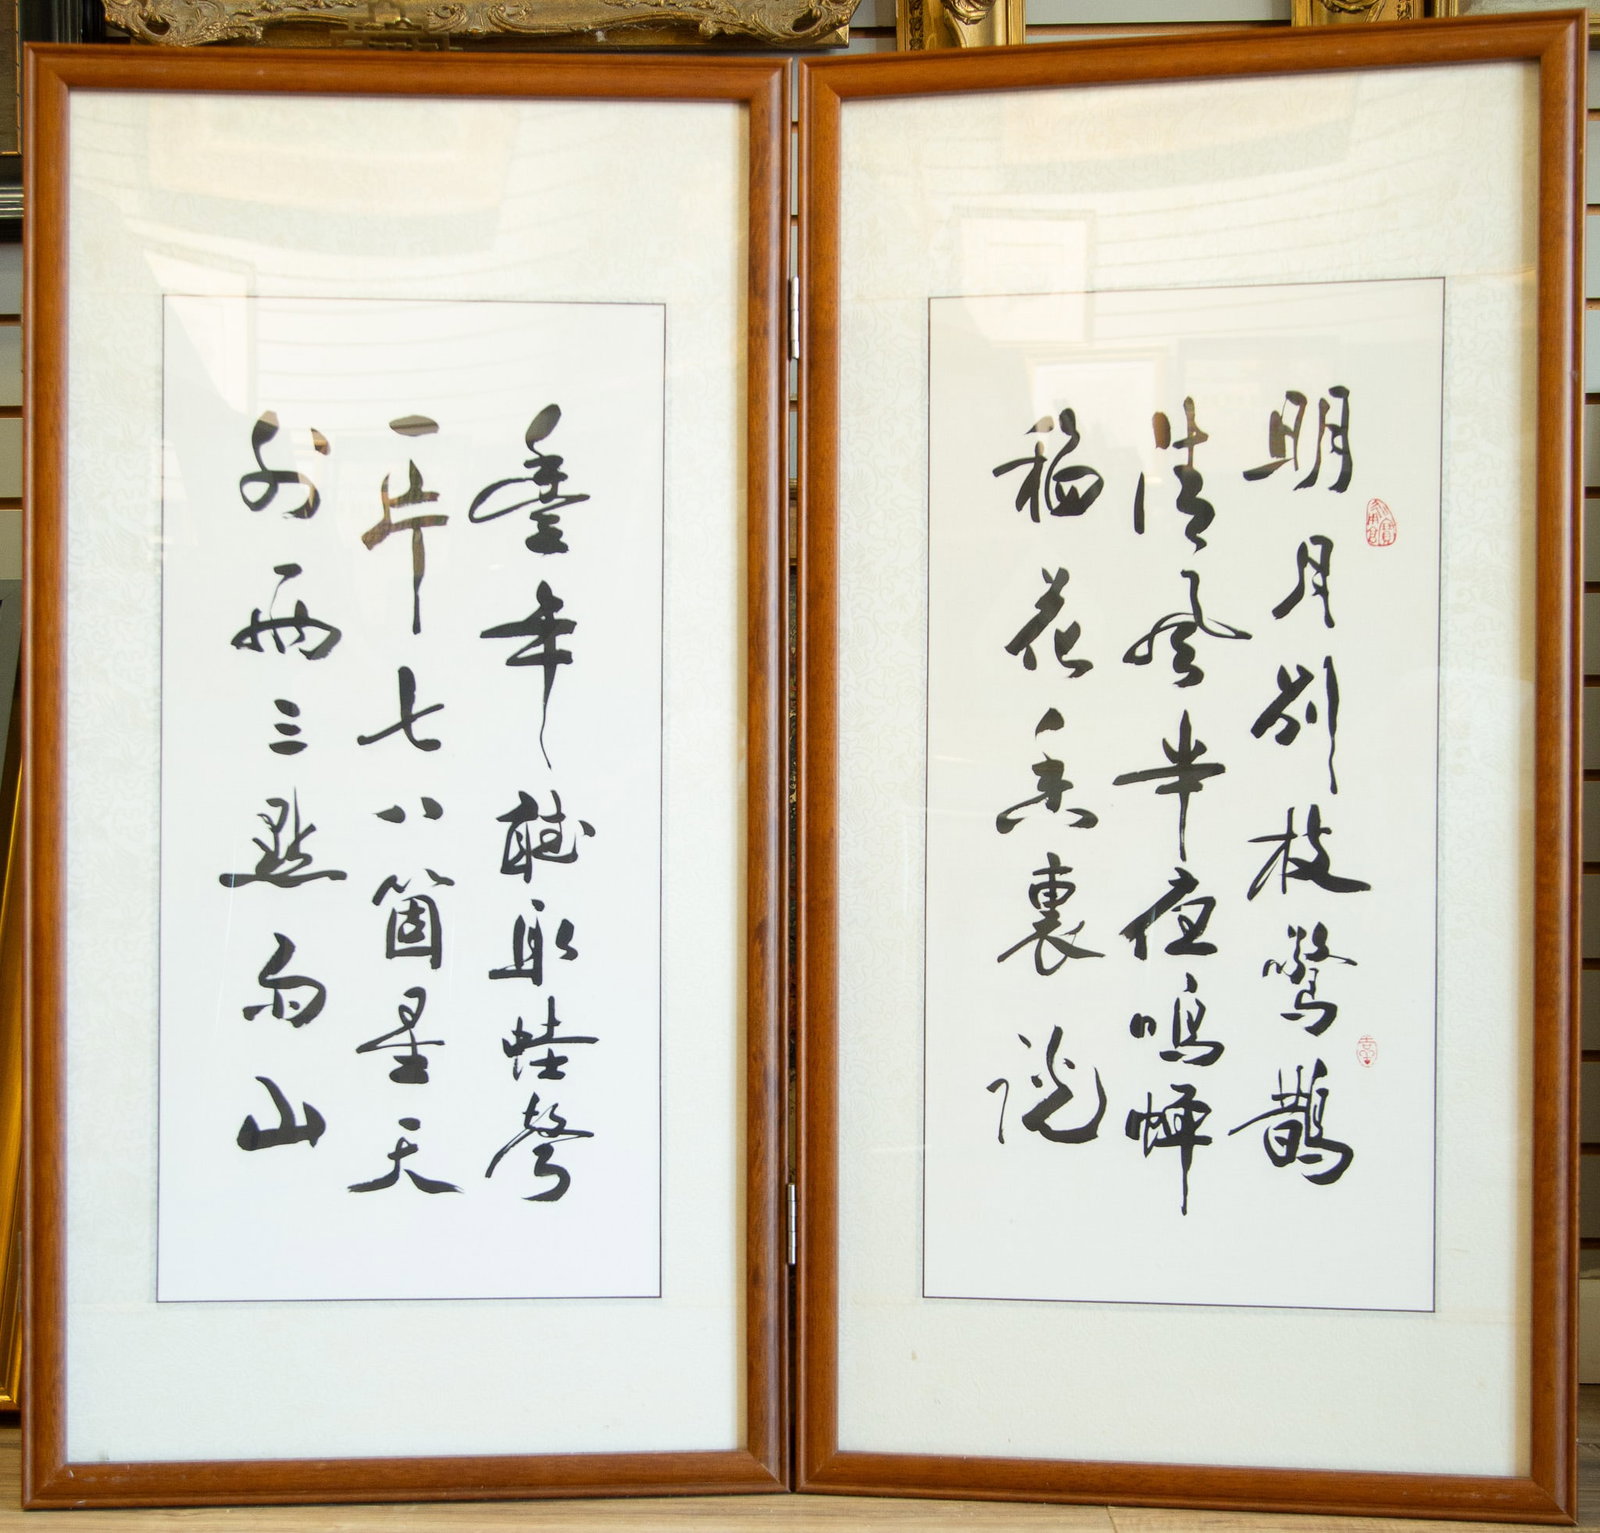 明月別枝驚鵲
清風半夜鳴蟬
稻花香裏說
豐年聽取蛙聲
一片七八箇星天
外兩三點雨山